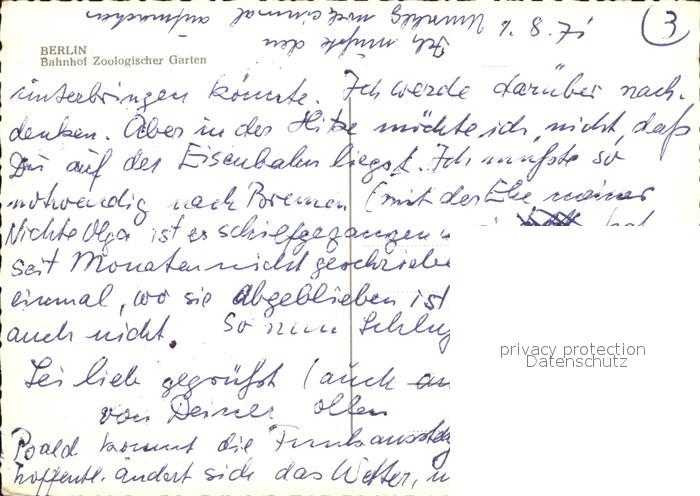 1. 8. 71
3
Ich mußte den
Umschlag noch einmal aufmachen
BERLIN
Bahnhof Zoologischer Garten
unterbringen könnte. Ich werde darüber nach-
denken. Aber in der Hitze möchte ich nicht, daß
Du auf der Eisenbahn liegst. Ich müßte so
notwendig nach Bremen (mit der Ehe meiner
Nichte Olga ist es schiefgegangen hat
seit Monaten nicht geschriebe
einmal, wo sie abgeblieben ist
auch nicht. So nun Schluß
Sei lieb gegrüßt (auch
von Deiner ollen
Bald kommt die Funkausste
hoffentl. ändert sich das Wetter, u
privacy protection
Datenschutz